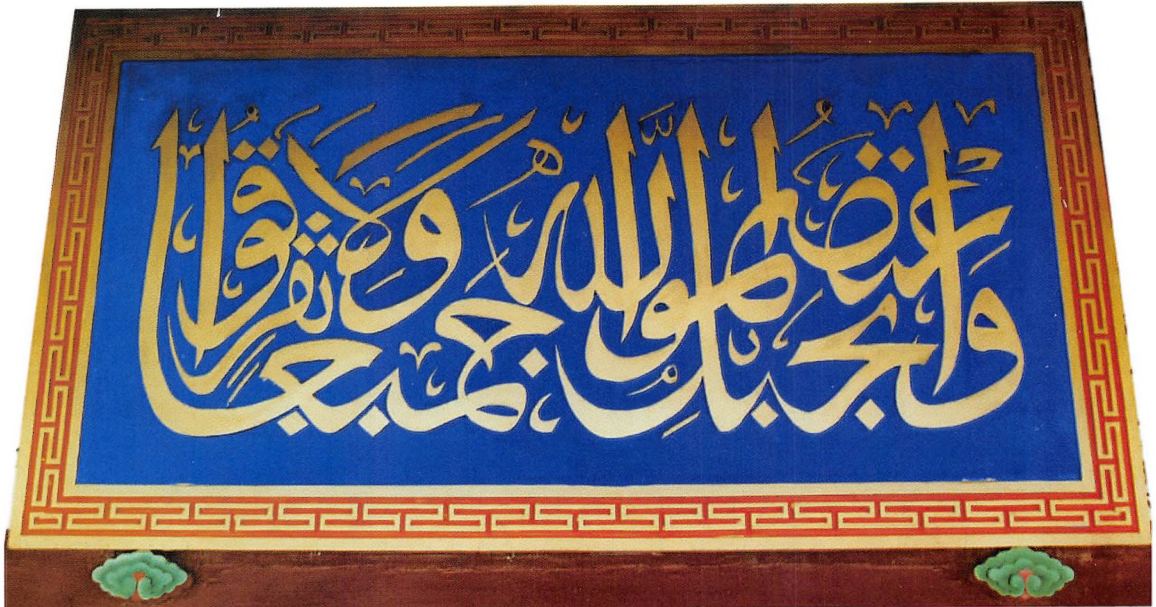 واعتصموا بحبل الله جميعا ولا تفرقوا